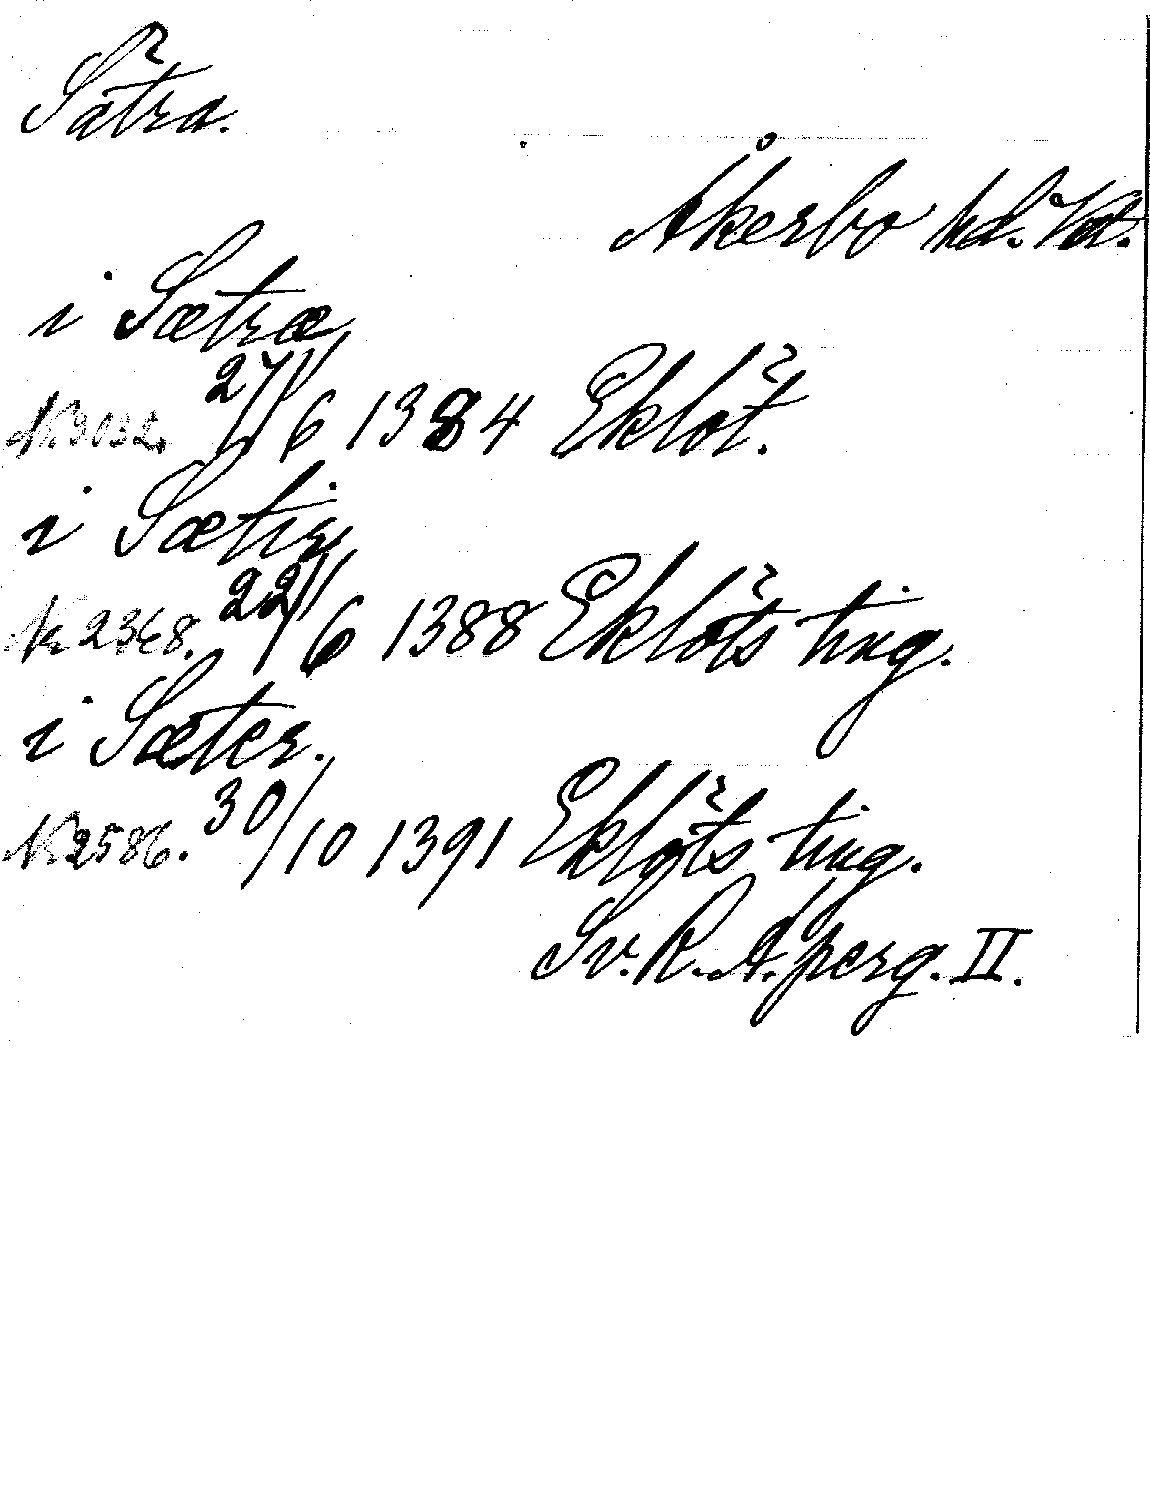 Sätra.
Åkerbo hd. Vd.
i Sætræ
Nr 3032. 27/6 1384 Eklöt.
i Sætir
Nr 2368. 22/6 1388 Eklöts ting.
i Sæter.
Nr 2586. 30/10 1391 Eklöts ting.
Sv. R. A. perg. II.